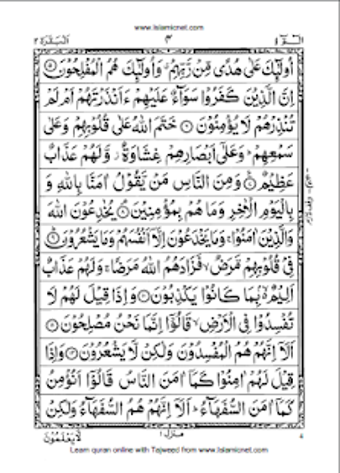 www.Islamicnet.com
البقرة ٢
٣
الٓمّٓ ١
اُولٰٓئِكَ عَلٰى هُدًى مِّنْ رَّبِّهِمْ ۙ وَاُولٰٓئِكَ هُمُ الْمُفْلِحُوْنَ ۝۵
اِنَّ الَّذِيْنَ كَفَرُوْا سَوَآءٌ عَلَيْهِمْ ءَاَنْذَرْتَهُمْ اَمْ لَمْ
تُنْذِرْهُمْ لَا يُؤْمِنُوْنَ ۝۶ خَتَمَ اللّٰهُ عَلٰى قُلُوْبِهِمْ وَعَلٰى
سَمْعِهِمْ ؕ وَعَلٰٓى اَبْصَارِهِمْ غِشَاوَةٌ ۙ وَّلَهُمْ عَذَابٌ
عَظِيْمٌ ۝۷ وَمِنَ النَّاسِ مَنْ يَّقُوْلُ اٰمَنَّا بِاللّٰهِ وَ
بِالْيَوْمِ الْاٰخِرِ وَمَا هُمْ بِمُؤْمِنِيْنَ ۝۸ يُخٰدِعُوْنَ اللّٰهَ
وَالَّذِيْنَ اٰمَنُوْا ۚ وَمَا يَخْدَعُوْنَ اِلَّاۤ اَنْفُسَهُمْ وَمَا يَشْعُرُوْنَ ۝۹
فِىْ قُلُوْبِهِمْ مَّرَضٌ ۙ فَزَادَهُمُ اللّٰهُ مَرَضًا ۚ وَلَهُمْ عَذَابٌ
اَلِيْمٌ ۢ ۙ بِمَا كَانُوْا يَكْذِبُوْنَ ۝۱۰ وَاِذَا قِيْلَ لَهُمْ لَا
تُفْسِدُوْا فِى الْاَرْضِ ۙ قَالُوْۤا اِنَّمَا نَحْنُ مُصْلِحُوْنَ ۝۱۱
اَلَاۤ اِنَّهُمْ هُمُ الْمُفْسِدُوْنَ وَلٰكِنْ لَّا يَشْعُرُوْنَ ۝۱۲ وَاِذَا
قِيْلَ لَهُمْ اٰمِنُوْا كَمَاۤ اٰمَنَ النَّاسُ قَالُوْۤا اَنُؤْمِنُ
كَمَاۤ اٰمَنَ السُّفَهَآءُ ؕ اَلَاۤ اِنَّهُمْ هُمُ السُّفَهَآءُ وَلٰكِنْ
لَّا يَعْلَمُوْنَ
منزل ۱
Learn quran online with Tajweed from www.Islamicnet.com